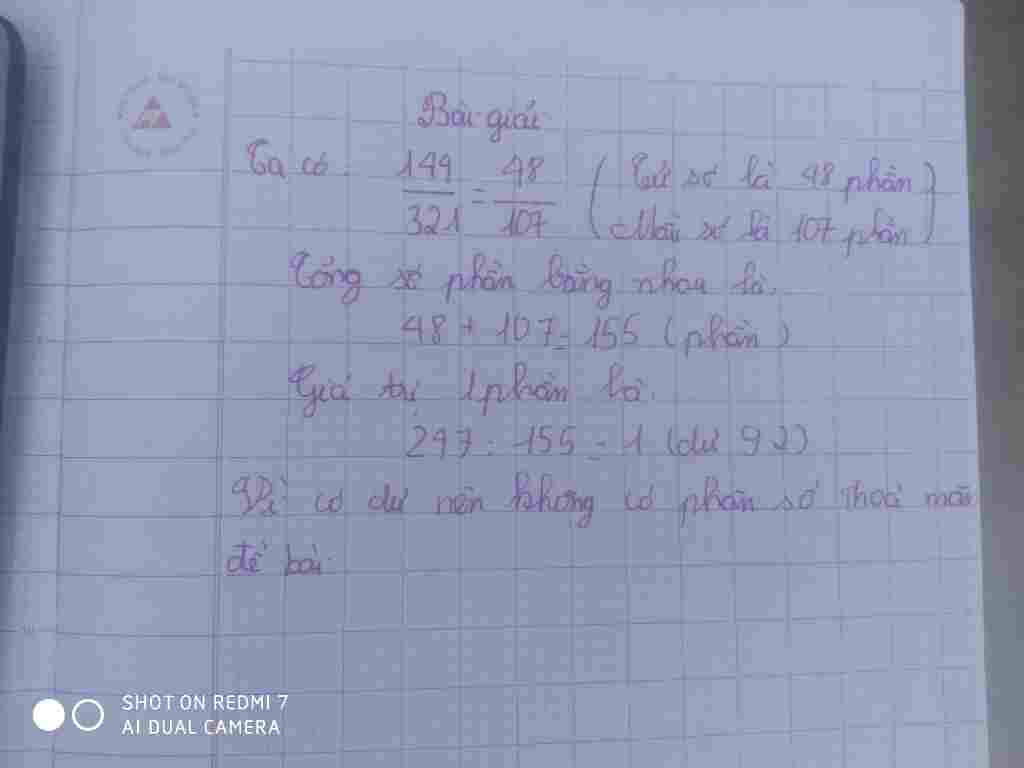 Bài giải
Ta có: 144/321 = 48/107 (Tử số là 48 phần
Mẫu số là 107 phần)
Tổng số phần bằng nhau là.
48 + 107 = 155 (phần)
Giá trị 1 phần là.
247 : 155 = 1 (dư 92)
Vì có dư nên không có phân số thoả mãn
đề bài.
SHOT ON REDMI 7
AI DUAL CAMERA